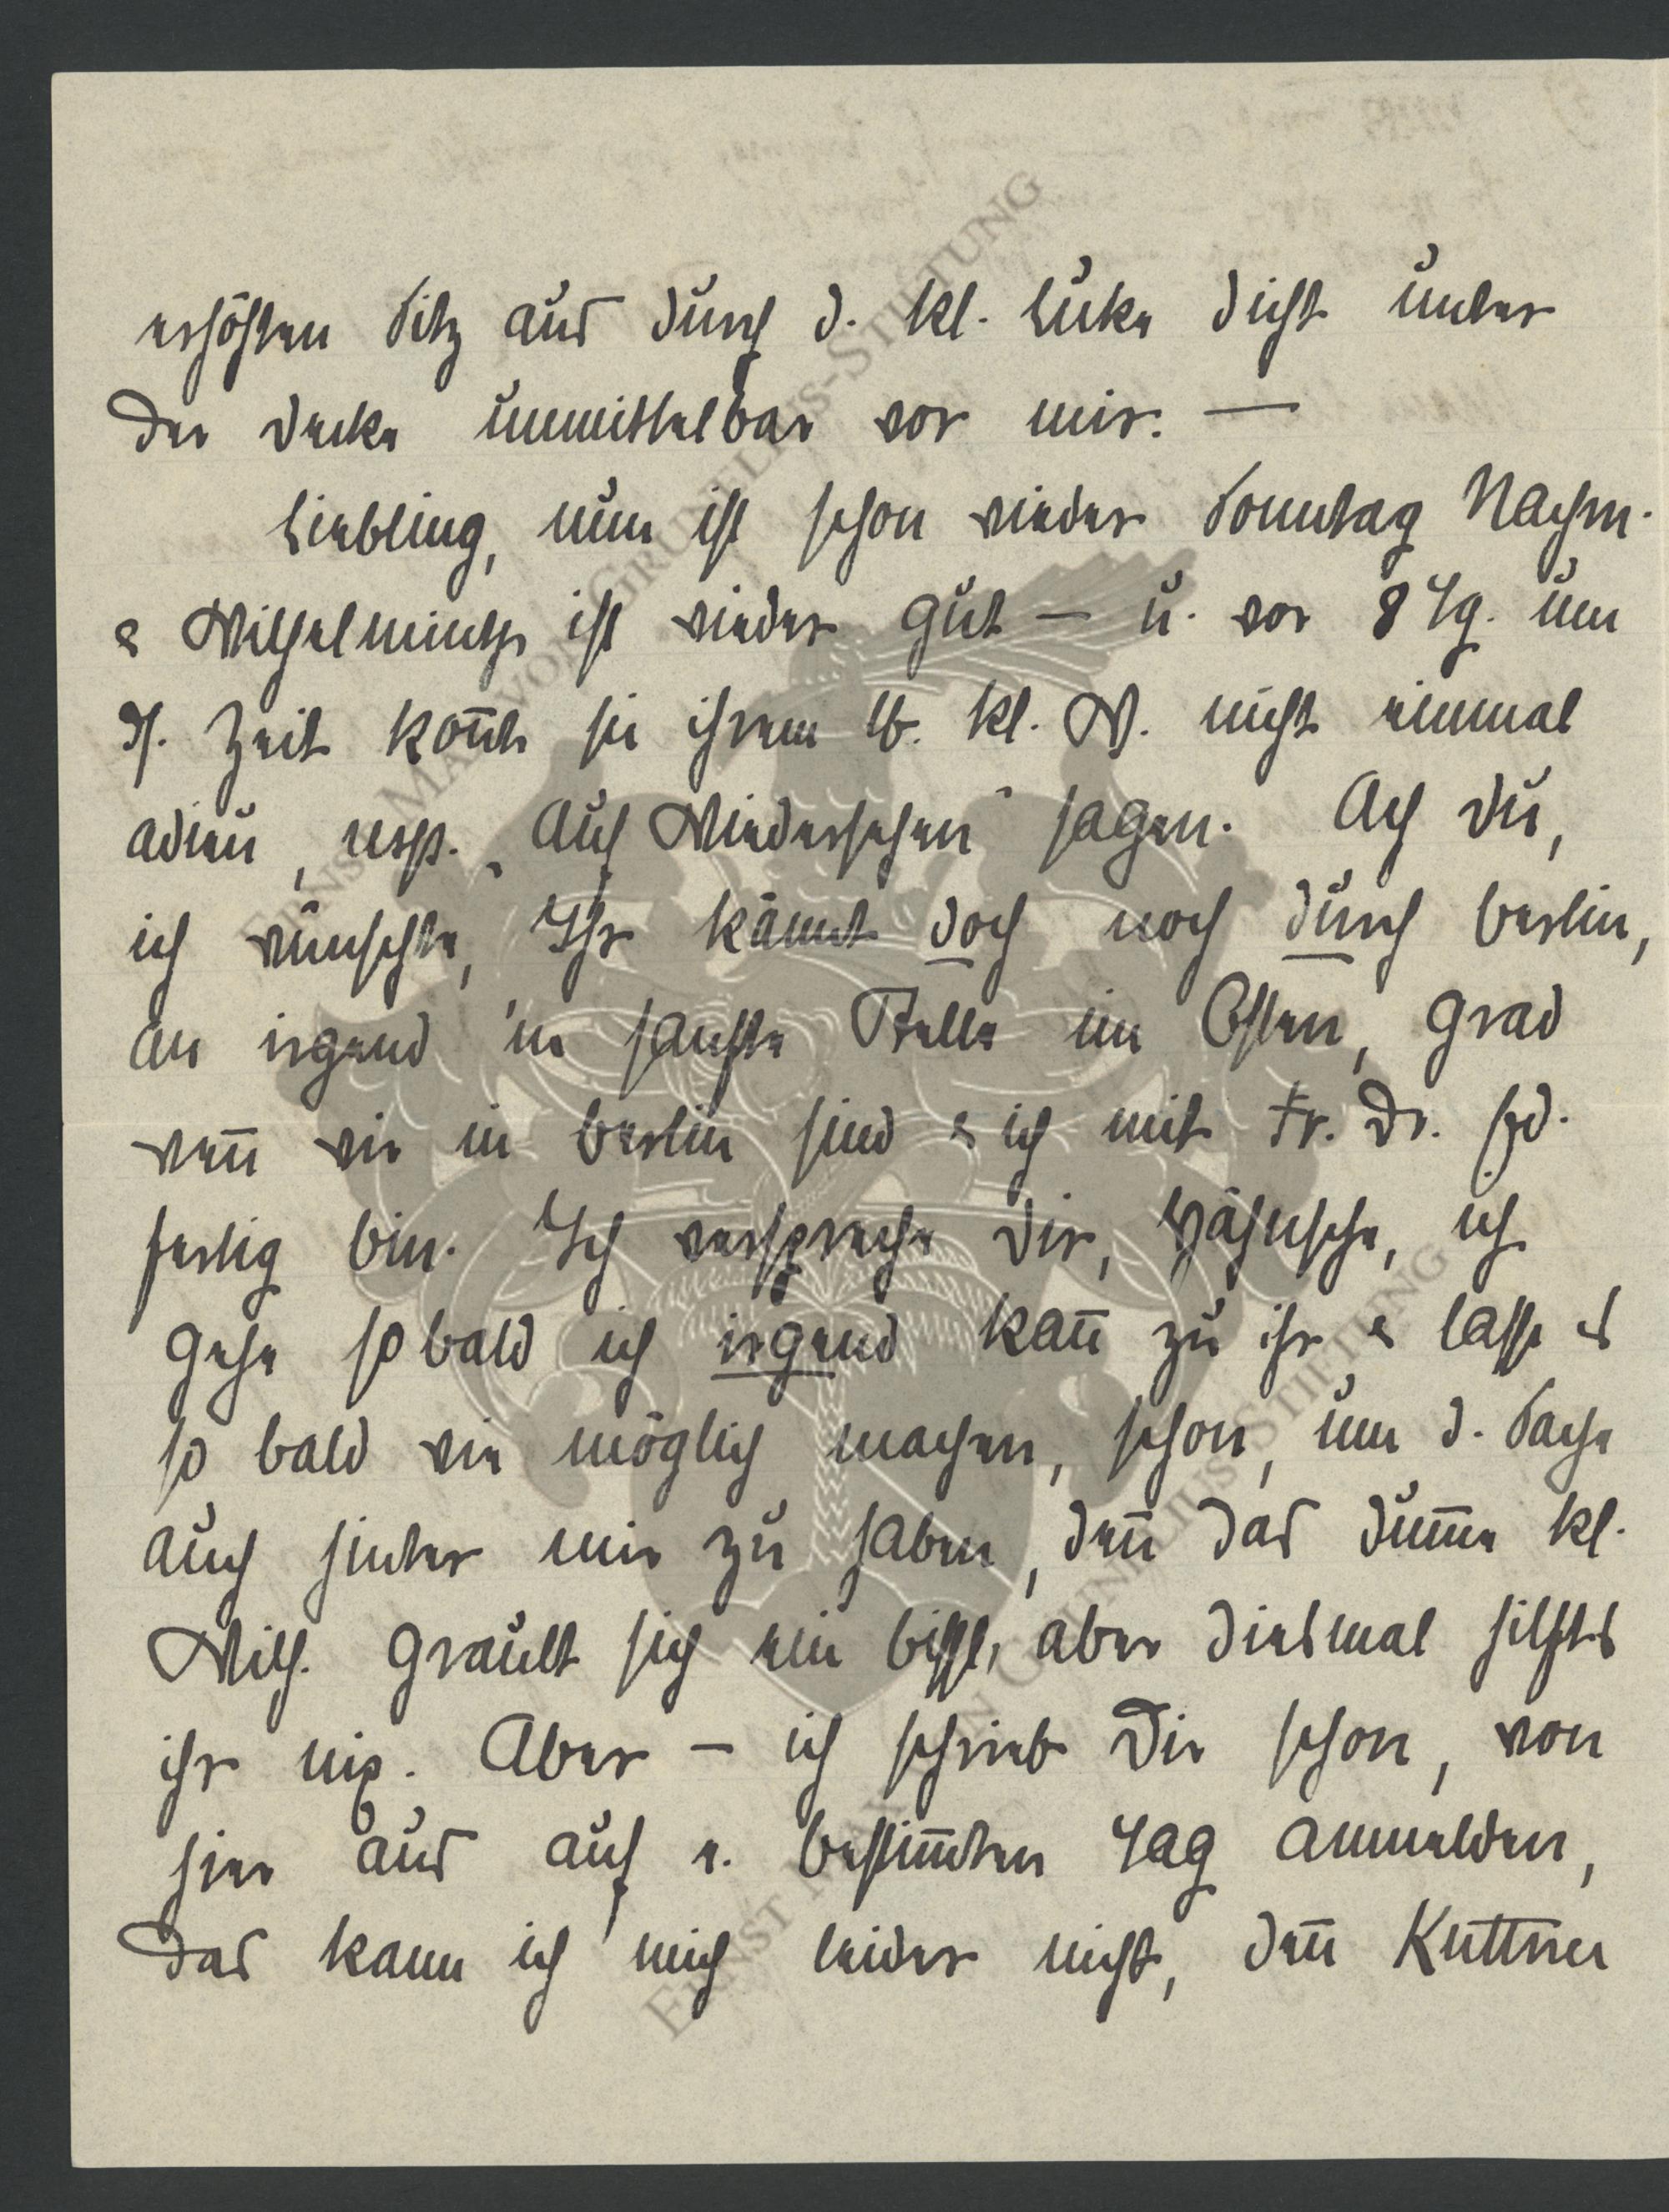 erhöhten Sitz aus durch d. kl. Luke dicht unter
der Decke unmittelbar vor mir. —
Liebling, nun ist schon wieder Sonntag Nachm.
& Wilhelminche ist wieder gut — u. vor 8 Tg. um
ds. Zeit kon̄te sie ihrem lb. kl. W. nicht einmal
adieu, resp. „Auf Wiedersehen" sagen. Ach Du,
ich wünschte, Ihr kämt doch noch durch Berlin,
an irgend 'ne sanfte Stelle im Osten, grad
wen̄ wir in Berlin sind & ich mit Fr. Dr.
fertig bin. Ich verspreche Dir, Hähnsche, ich
gehe sobald ich irgend kan̄ zu ihr & lasse es
so bald wie möglich machen, schon, um d. Sache
auch hinter mir zu haben, den̄ das dum̄e kl.
Wilh. grault sich ein bissl, aber diesmal hilfts
ihr nix. Aber — ich schrieb Dir schon, von
hier aus auf e. bestim̄ten Tag anmelden,
das kann ich mich leider nicht, den̄ Kuttner
ERNST MAX VON GRUNELIUS-STIFTUNG
ERNST MAX VON GRUNELIUS-STIFTUNG